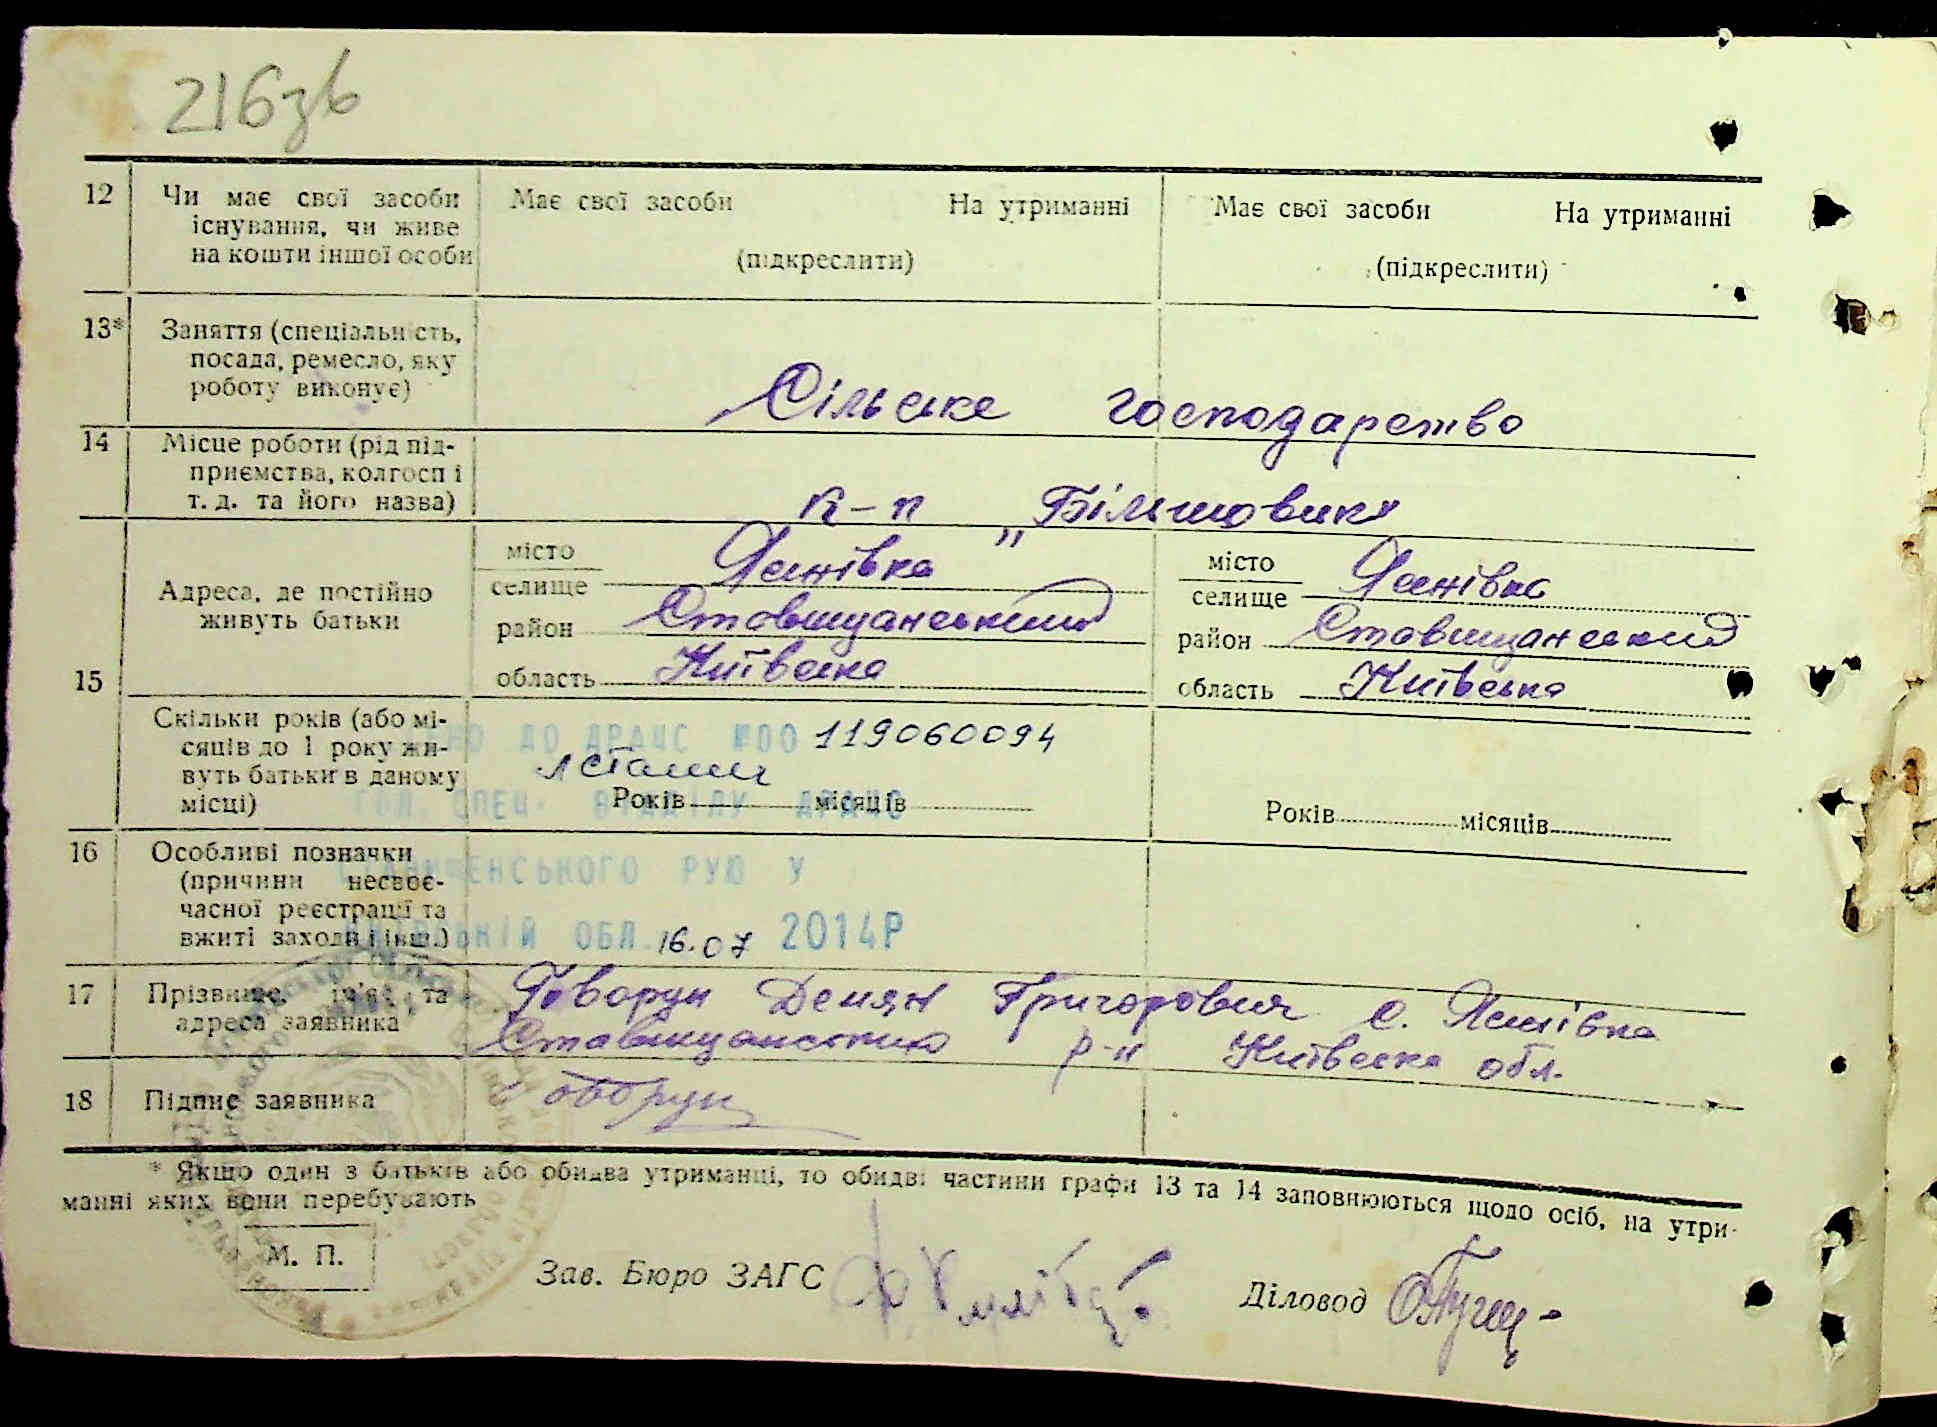 216зв
12 Чи має свої засоби існування, чи живе на кошти іншої особи
Має свої засоби На утриманні
(підкреслити)
Має свої засоби На утриманні
(підкреслити)
13* Заняття (спеціальність,
посада, ремесло, яку
роботу виконує)
Сільське господарство
14 Місце роботи (рід під-
приємства, колгосп і
т. д. та його назва)
к-п „Більшовик"
15 Адреса, де постійно
живуть батьки
місто
селище Ясинівка
район Ставищанський
область Київська
місто
селище Ясинівка
район Ставищанський
область Київська
Скільки років (або мі-
сяців до 1 року жи-
вуть батьки в даному
місці)
ЕНО ДО ДРАЦС №00119060094
Років місяців
ГОЛ. СПЕЦ. ВІДДІЛУ ДРАЦС
Років місяців
16 Особливі позначки
(причини несвоє-
часної реєстрації та
вжиті заходи і інш.)
РУЮ У
ОБЛ. 16.07 2014Р
17 Прізвище, ім'я, та
адреса заявника
Говорун Демян Григорович с. Ясинівка
р-н Київська обл.
18 Підпис заявника
Говорун
* Якщо один з батьків або обидва утриманці, то обидві частини графи 13 та 14 заповнюються щодо осіб, на утри-
манні яких вони перебувають
М. П.
Зав. Бюро ЗАГС
Діловод